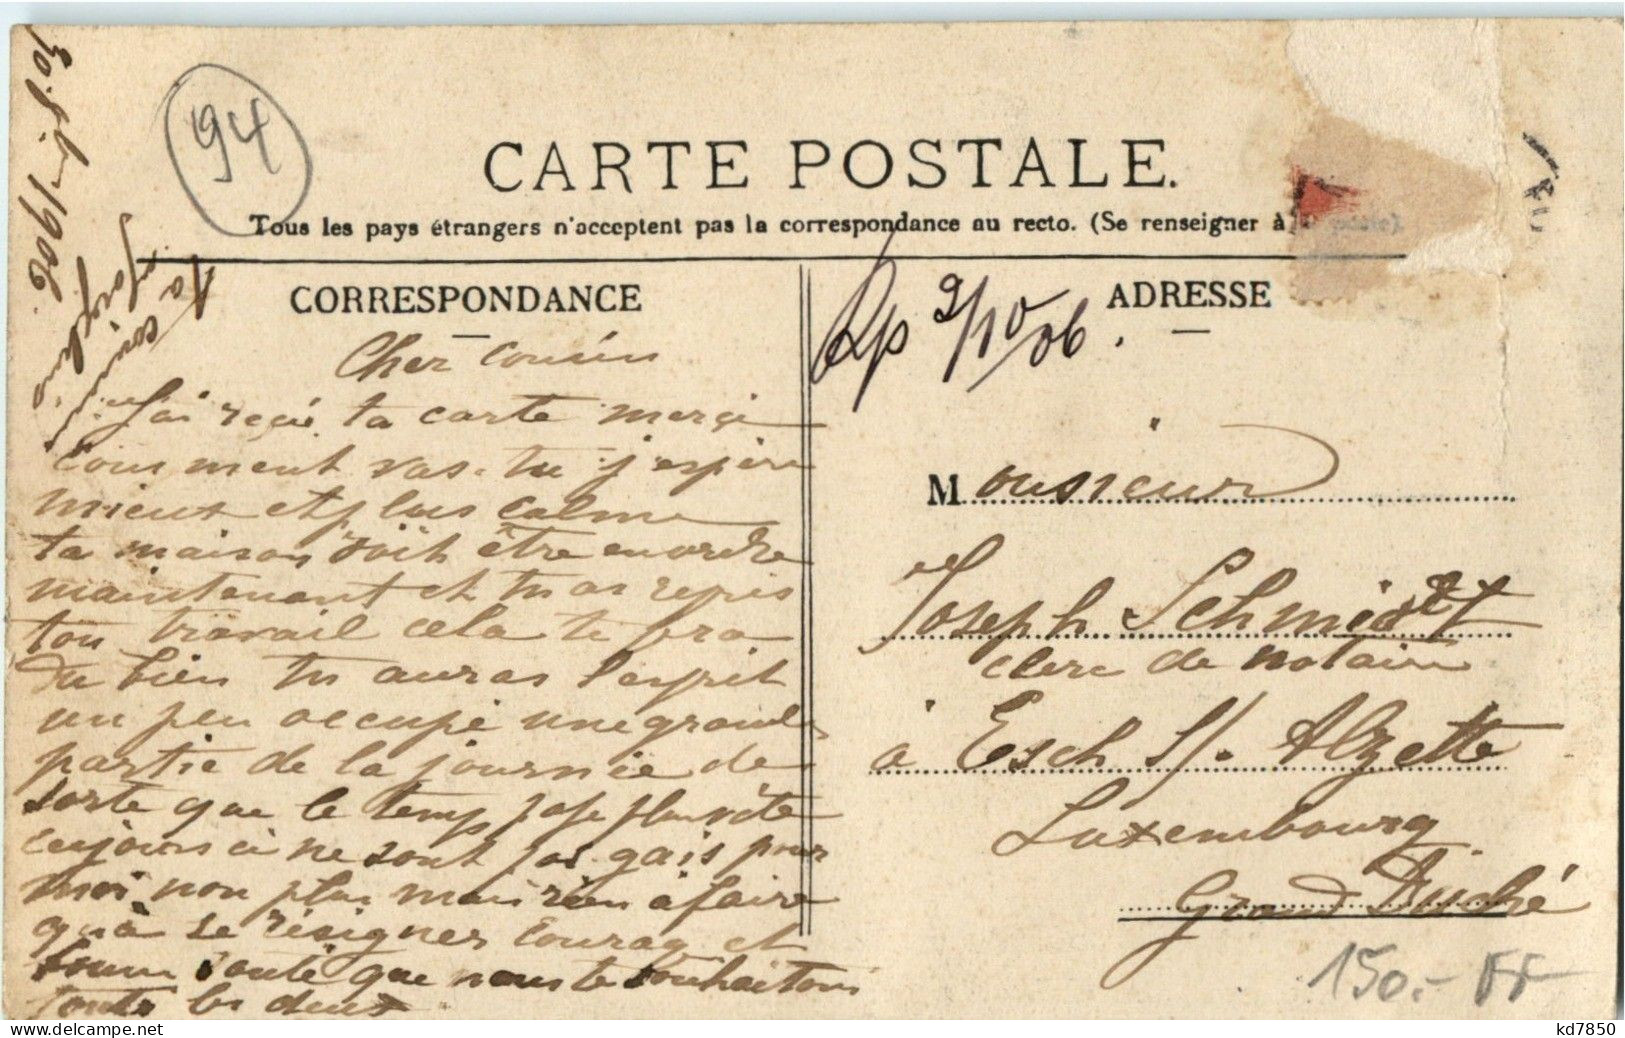 30. 7bre 1906.
94
CARTE POSTALE.
Tous les pays étrangers n'acceptent pas la correspondance au recto. (Se renseigner à la poste).
CORRESPONDANCE
ADRESSE
Rp 2/10/06.
Ta cousine
Joséphine
Cher Cousin
J'ai reçu ta carte merçi
comment vas-tu j'espère
mieux et plus calme
ta maison doit être en ordre
maintenant et tu as repris
ton travail cela te fera
du bien tu auras l'esprit
un peu occupé une grande
partie de la journée de
sorte que le temps passe plus vite
toujours à ne sont pas gais pour
moi non plus mais rien à faire
qu'à se résigner courag et
bonne santé que nous te souhaitons
touts les deux
Monsieur
Joseph Schmidt
clerc de notaire
à Esch s/. Alzette
Luxembourg
Grand Duché
150.- FF
kd7850